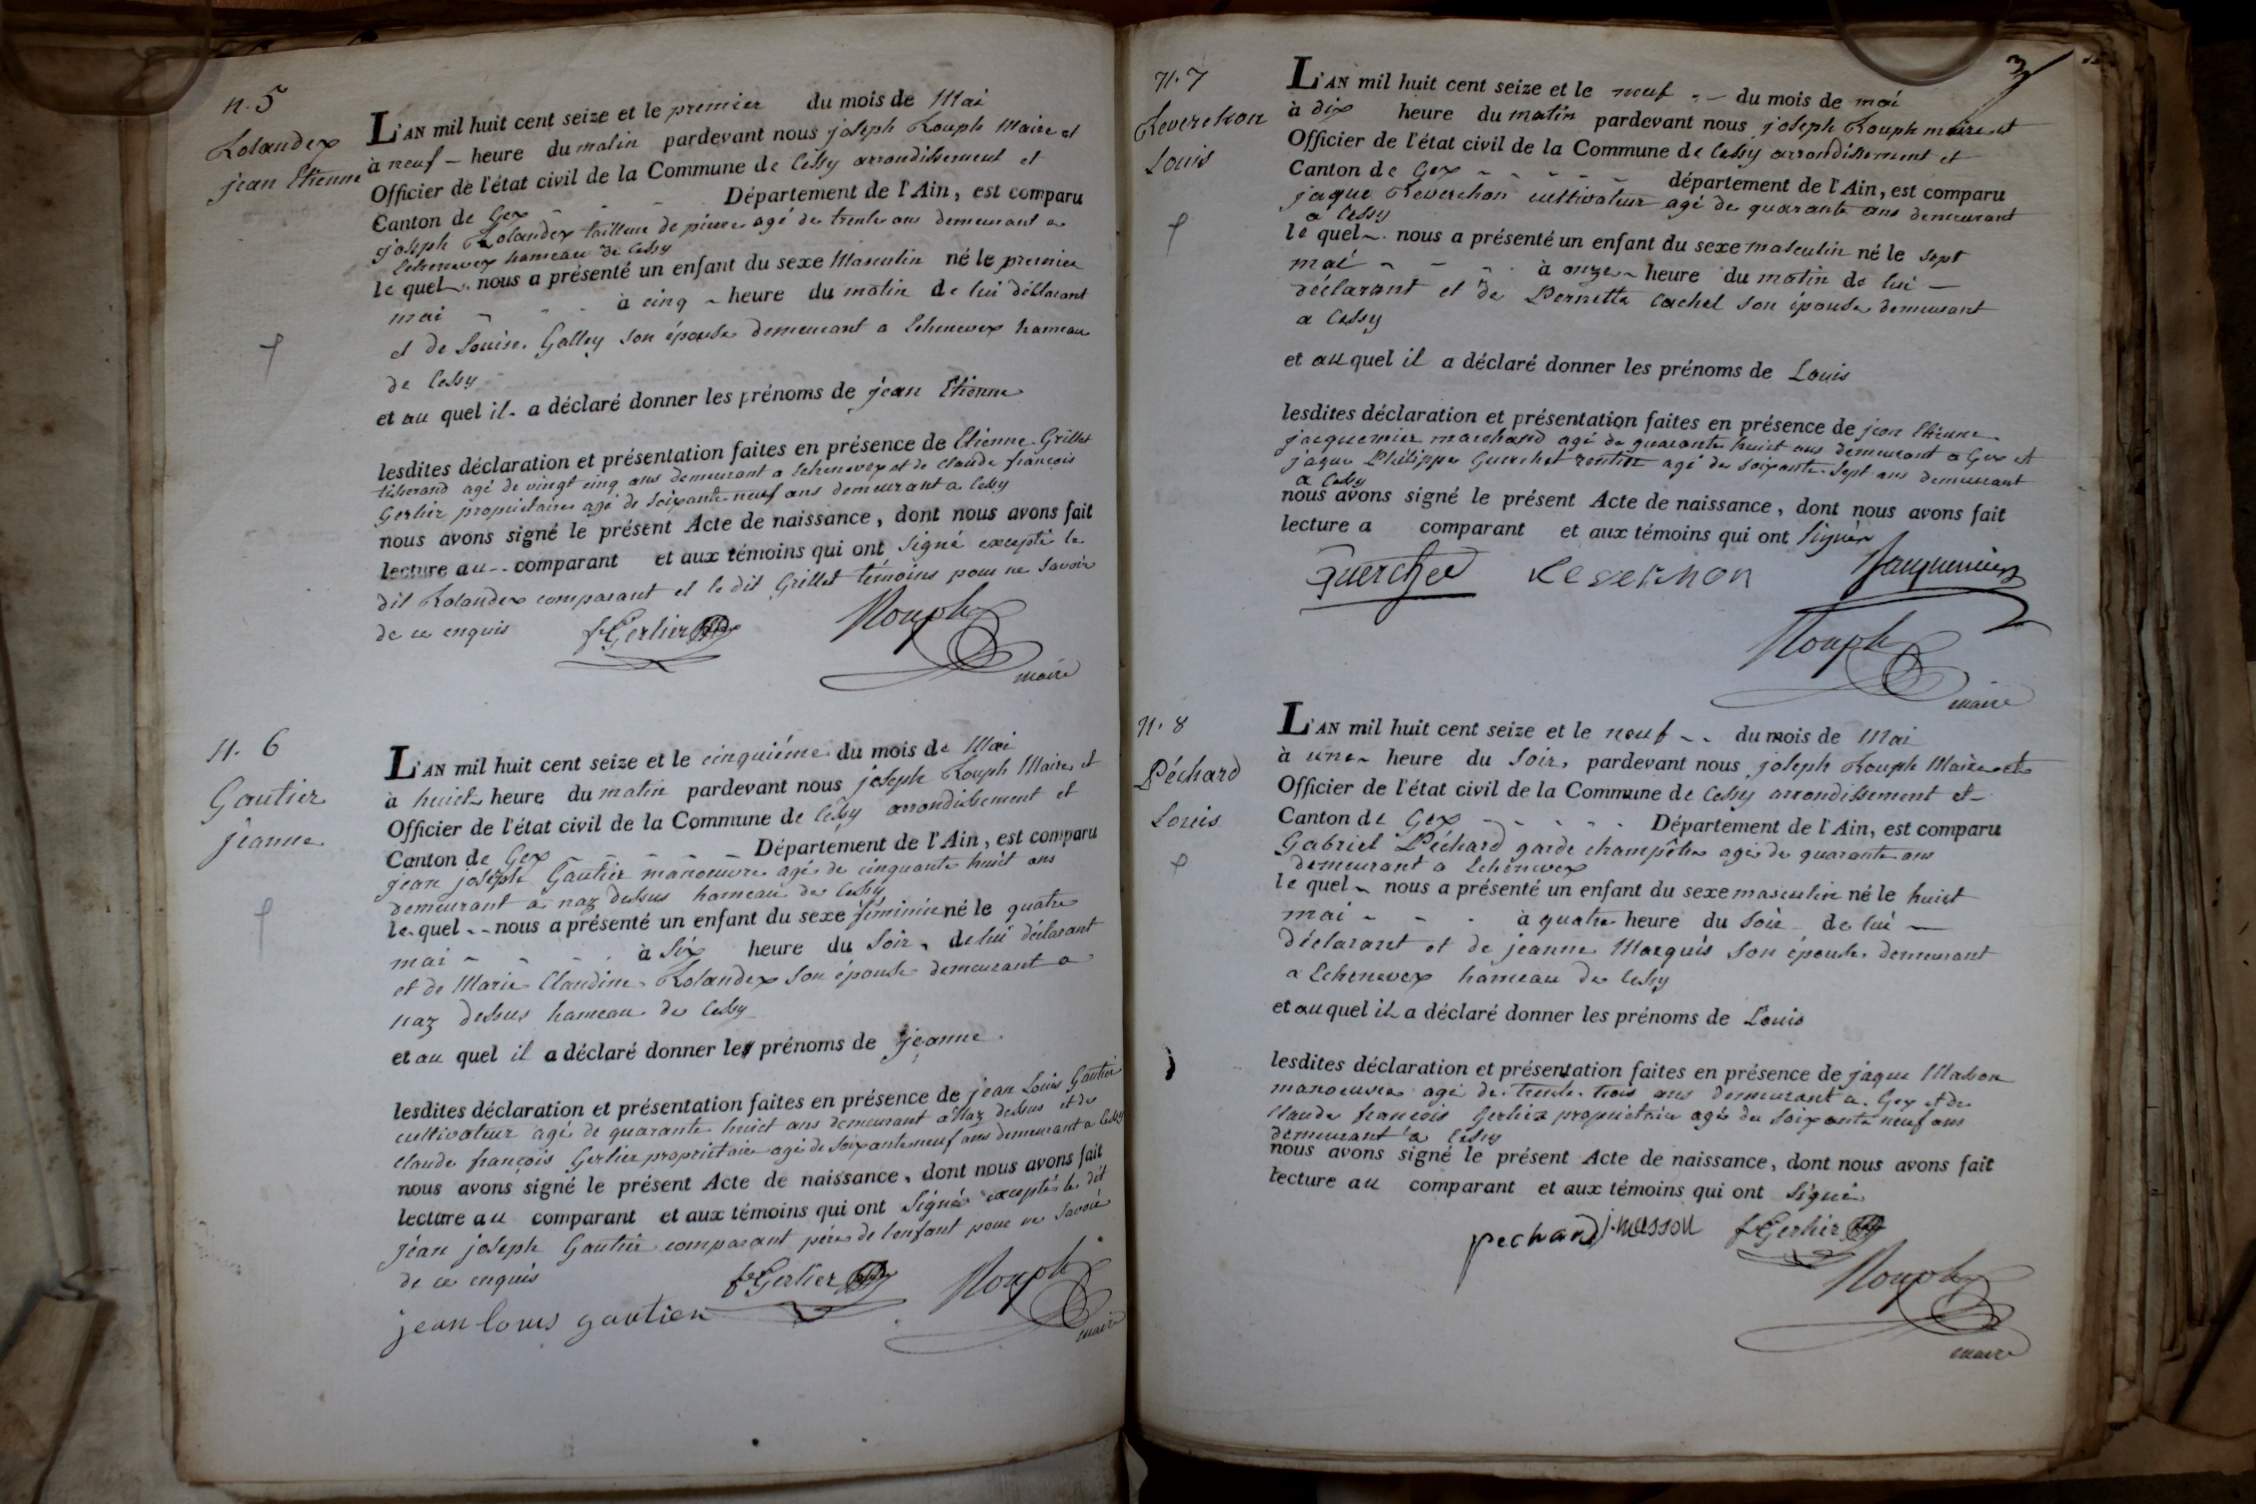 n. 5
Rolandex
jean Etienne
L'AN mil huit cent seize et le premier du mois de Mai
à neuf - heure du matin pardevant nous joseph Rouph Maire et
Officier de l'état civil de la Commune de Cessy arrondissement et
Canton de Gex - - - Département de l'Ain, est comparu
joseph Rolandex tailleur de pierre agé de trente ans demeurant a
Echenevex hameau de Cessy
le quel nous a présenté un enfant du sexe Masculin né le premier
mai - - - à cinq - heure du matin de lui déclarant
et de Louise Galley son épouse demeurant a Echenevex hameau
de Cessy
et au quel il a déclaré donner les prénoms de jean Etienne
lesdites déclaration et présentation faites en présence de Etienne Grillet
tisserand agé de vingt cinq ans demeurant a Echenevex et de claude françois
Gerlier propriétaire agé de soixante neuf ans demeurant a Cessy
nous avons signé le présent Acte de naissance, dont nous avons fait
lecture au - - comparant et aux témoins qui ont signé excepté le
dit Rolandex comparant et le dit Grillet témoins pour ne savoir
de ce enquis
f Gerlier
Rouph
maire
n. 6
Gautier
jeanne
L'AN mil huit cent seize et le cinquiéme du mois de Mai
à huict heure du matin pardevant nous joseph Rouph Maire et
Officier de l'état civil de la Commune de Cessy arrondissement et
Canton de Gex - - - Département de l'Ain, est comparu
jean joseph Gautier manoeuvre agé de cinquante huit ans
demeurant a naz dessus hameau de Cessy
le quel - - nous a présenté un enfant du sexe féminin né le quatre
mai - - - à six heure du soir - de lui déclarant
et de Marie Claudine Rolandex son épouse demeurant a
naz dessus hameau de Cessy
et au quel il a déclaré donner les prénoms de jeanne
lesdites déclaration et présentation faites en présence de jean Louis Gautier
cultivateur agé de quarante huict ans demeurant a Naz dessus et de
claude françois Gerlier propriétaire agé de soixante neuf ans demeurant a Cessy
nous avons signé le présent Acte de naissance, dont nous avons fait
lecture au comparant et aux témoins qui ont signé excepté le dit
jean joseph Gautier comparant père de l'enfant pour ne savoir
de ce enquis
f Gerlier
Rouph
jean louis gautier
maire
3
n. 7
Reverchon
Louis
L'AN mil huit cent seize et le neuf - - du mois de mai
à dix heure du matin pardevant nous joseph Rouph maire et
Officier de l'état civil de la Commune de Cessy arrondissement et
Canton de Gex - - - - - département de l'Ain, est comparu
jaque Reverchon cultivateur agé de quarante ans demeurant
a Cessy
le quel - nous a présenté un enfant du sexe masculin né le sept
mai - - - à onze - heure du matin de lui -
déclarant et de Pernette Cachel son épouse demeurant
a Cessy
et au quel il a déclaré donner les prénoms de Louis
lesdites déclaration et présentation faites en présence de jean Etienne
jacquemier marchand agé de quarante huict ans demeurant a Gex et
jaque Philippe Guerchet rentier agé de soixante sept ans demeurant
a Cessy
nous avons signé le présent Acte de naissance, dont nous avons fait
lecture a comparant et aux témoins qui ont signér
Guerchet
Reverchon
Jacquemier
Rouph
maire
n. 8
Péchard
Louis
L'AN mil huit cent seize et le neuf - - du mois de Mai
à une heure du soir, pardevant nous joseph Rouph Maire et
Officier de l'état civil de la Commune de Cessy arrondissement et
Canton de Gex - - - - - Département de l'Ain, est comparu
Gabriel Péchard garde champêtre agé de quarante ans
demeurant a Echenevex
le quel - nous a présenté un enfant du sexe masculin né le huict
mai - - - à quatre heure du soir de lui -
déclarant et de jeanne Marquis son épouse demeurant
a Echenevex hameau de Cessy
et au quel il a déclaré donner les prénoms de Louis
lesdites déclaration et présentation faites en présence de jaque Masson
manoeuvre agé de trente trois ans demeurant a Gex et de
claude françois Gerlier propriétaire agé de soixante neuf ans
demeurant a Cessy
nous avons signé le présent Acte de naissance, dont nous avons fait
lecture au comparant et aux témoins qui ont signé
pechard
j. masson
f Gerlier
Rouph
maire